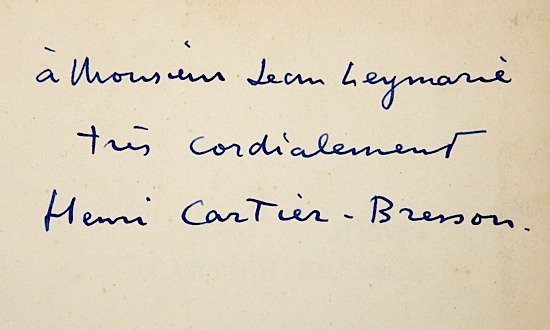 à Monsieur Jean Leymarie
très cordialement
Henri Cartier-Bresson.